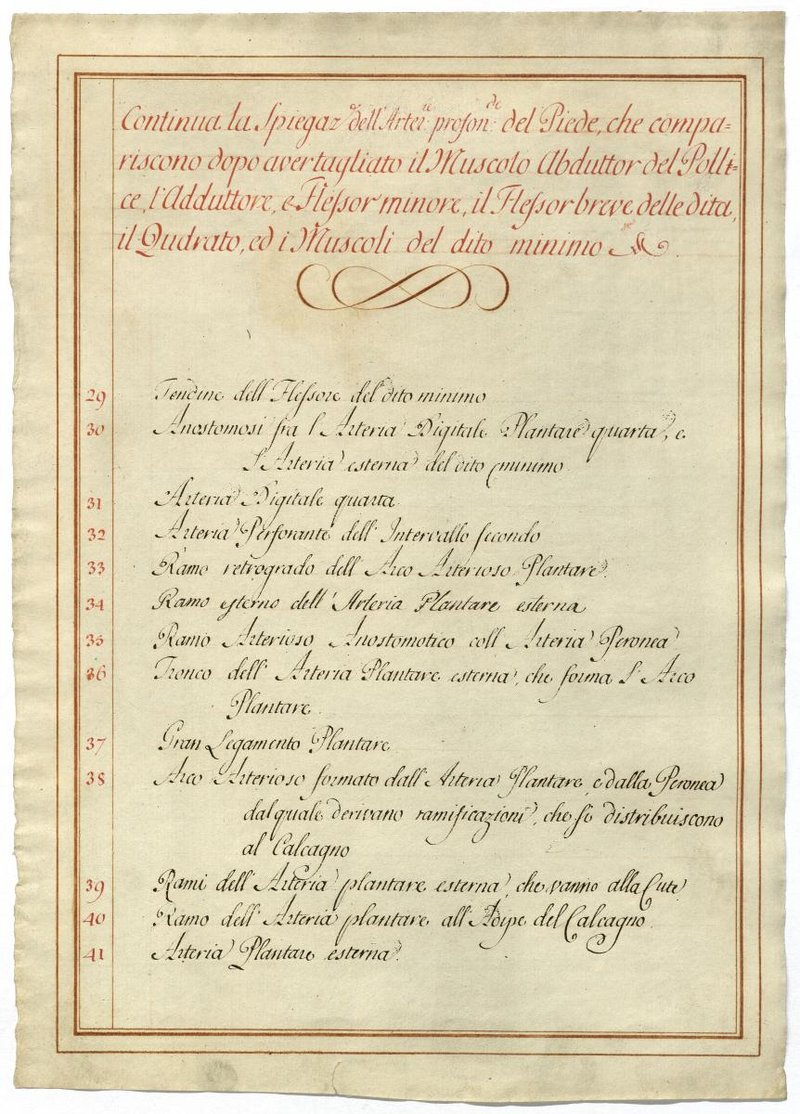 Continua la Spiegaz.ne dell'Arter.ie profon.de del Piede, che compa=
riscono dopo aver tagliato il Muscolo Abduttor del Polli=
ce, l'Adduttore, e Flessor minore, il Flessor breve delle dita,
il Qudrato, ed i Muscoli del dito minimo
29 Tendine dell Flessore del dito minimo
30 Anostomosi fra l'Arteria Digitale Plantare quarta, e
l'Arteria esterna del dito minimo
31 Arteria Digitale quarta
32 Arteria Perforante dell'Intervallo secondo
33 Ramo retrogrado dell Arco Arterioso Plantare.
34 Ramo esterno dell'Arteria Plantare esterna
35 Ramo Arterioso Anostomotico coll Arteria Peronea
36 Tronco dell'Arteria Plantare esterna, che forma l'Arco
Plantare
37 Gran Legamento Plantare
38 Arco Arterioso formato dall'Arteria Plantare, e dalla Peronea
dal quale derivano ramificazioni, che si distribuiscono
al Calcagno
39 Rami dell'Arteria plantare esterna, che vanno alla Cute
40 Ramo dell'Arteria plantare all'Adipe del Calcagno
41 Arteria Plantare esterna.